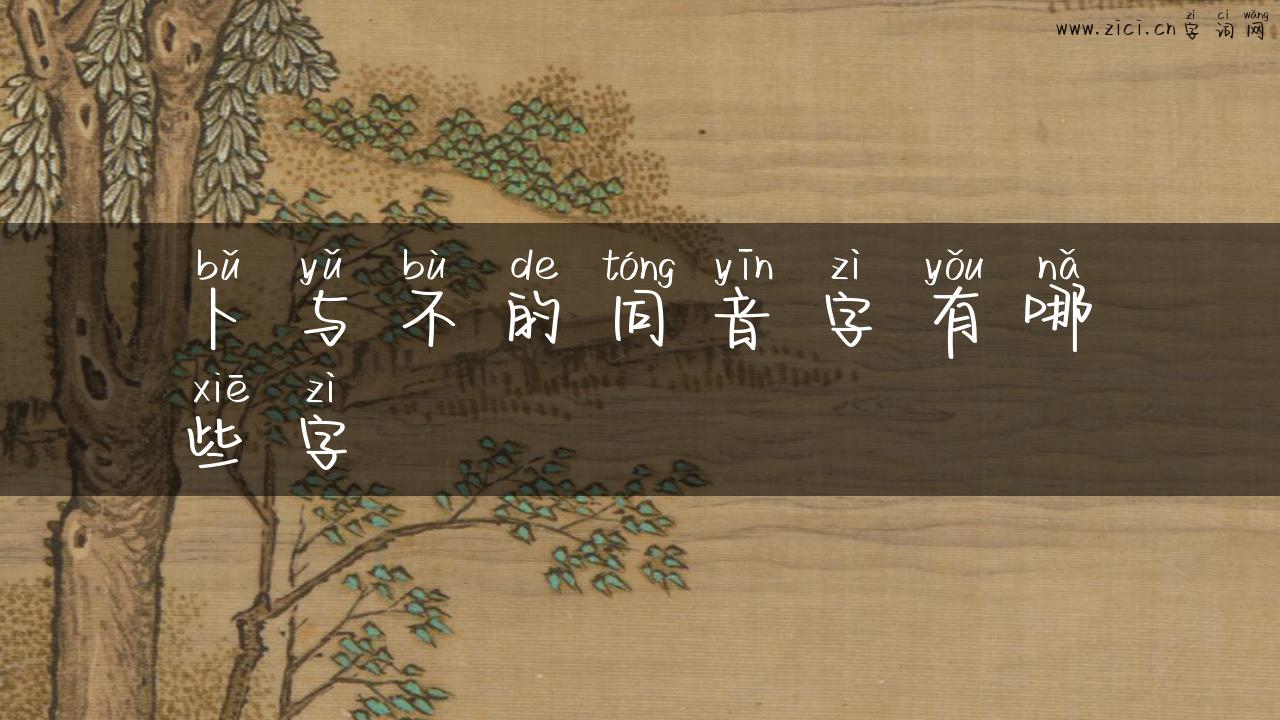 zì cí wǎng
www.zici.cn 字词网
bǔ yǔ bù de tóng yīn zì yǒu nǎ
卜与不的同音字有哪
xiē zì
些字